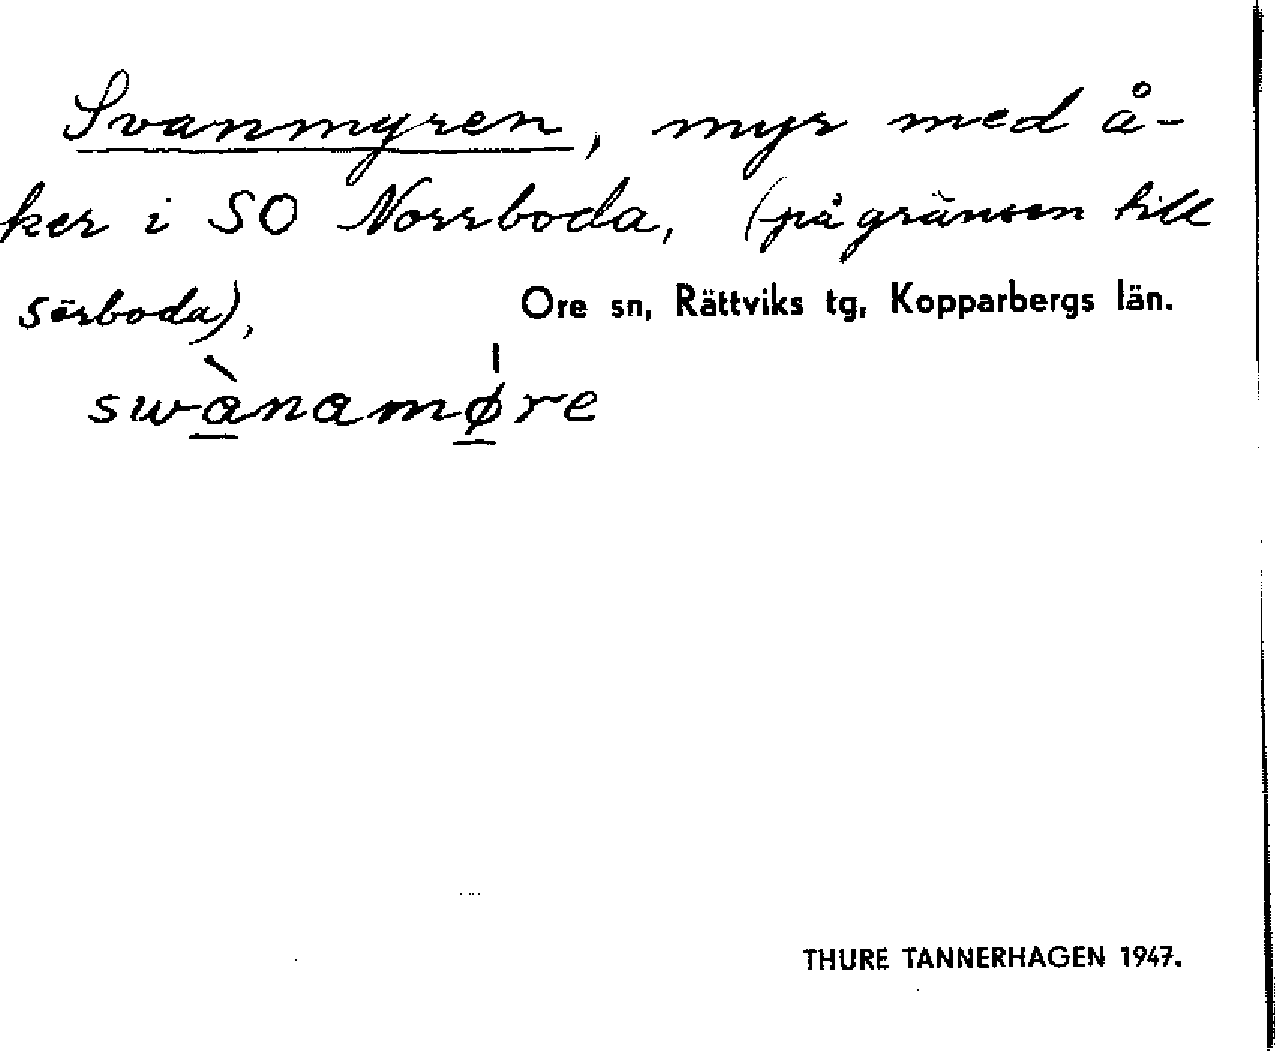 Svanmyren, myr med å-
ker i SO Norrboda, (på gränsen till
Sörboda),
Ore sn, Rättviks tg, Kopparbergs län.
swànamøre
THURE TANNERHAGEN 1947.